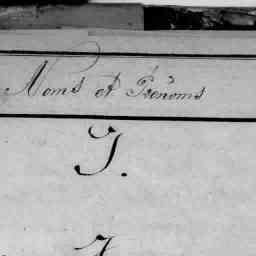 Noms et Prénoms
J.